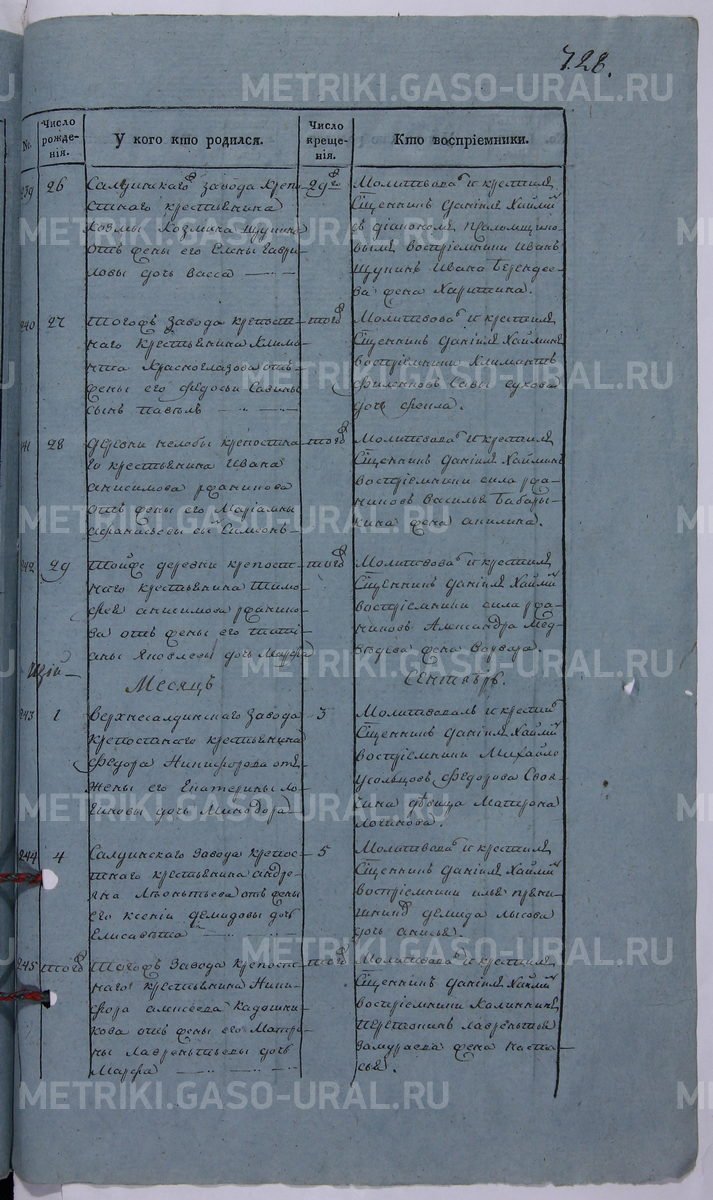 728.
№.
Число рожденія.
У кого кто родился.
Число крещенія.
Кто воспріемники.
239 26 Салдинскаго завода крепо- 29е
стнаго крестьянина
Козмы Козмина Щупина
отъ жены его Елены Гаври-
ловы дочь Васса
Молитвова и крестилъ
Сщенникъ Даніилъ Хаймин
съ діакономъ
воспріемники Иванъ
Щупинъ Ивана Берендее-
ва жена Харитина.
240 27 тогожъ завода крепост- тогож
наго крестьянина Клими-
нта Красноглазова отъ
жены его Федосьи Савины
сынъ Павелъ
Молитвова и крестилъ
Сщенникъ Даніилъ Хайминъ
воспріемники Климантъ
Филатовъ Савы Сухова
дочь Фекла.
241 28 деревни Нелобы крепостна- тогож
го крестьянина Ивана
Анисимова Ржаникова
отъ жены его Маріамны
Афанасьевы сынъ Симионъ
Молитвова и крестилъ
Сщенникъ Даніилъ Хайминъ
воспріемники Сила Ржа-
никовъ Василья Бабары-
кина жена Акилина.
242 29 тойже деревни крепост- тогож
наго крестьянина Тимо-
фея Анисимова Ржанико-
ва отъ жены его Тати-
аны Яковлевы дочь Марфа
Молитвова и крестилъ
Сщенникъ Даніилъ Хаймин
воспріемники Сила Ржа-
никовъ Александра Мед-
ведева жена Варвара.
Месяцъ Сентябрь.
243 1 Верхнесалдинскаго завода 3
крепостнаго крестьянина
Федора Никифорова отъ
жены его Екатерины Ло-
гиновы дочь Минодора
Молитвовалъ и крестилъ
Сщенникъ Даніилъ Хаймин
воспріемники Михайло
Усольцовъ Федорова Своя-
кина девица Матрона
Логинова.
244 4 Салдинскаго завода крепос- 5
тнаго крестьянина Андре-
яна Леонтьева отъ жены
его Ксеніи Демидовы дочь
Елисавета
Молитвова и крестилъ
Сщенникъ Даніилъ Хаймин
воспріемники Илья
Демида Лысова
дочь Анисья.
245 тогож тогожъ завода крепост- тогож
наго крестьянина Ники-
фора Алексеева Кадочни-
кова отъ жены его Матро-
ны Лаврентьевы дочь
Марфа
Молитвова и крестилъ
Сщенникъ Даніилъ Хаймин
воспріемники Калинникъ
Перетокинъ Лаврентья
Замураева жена Наста-
сья.
METRIKI.GASO-URAL.RU